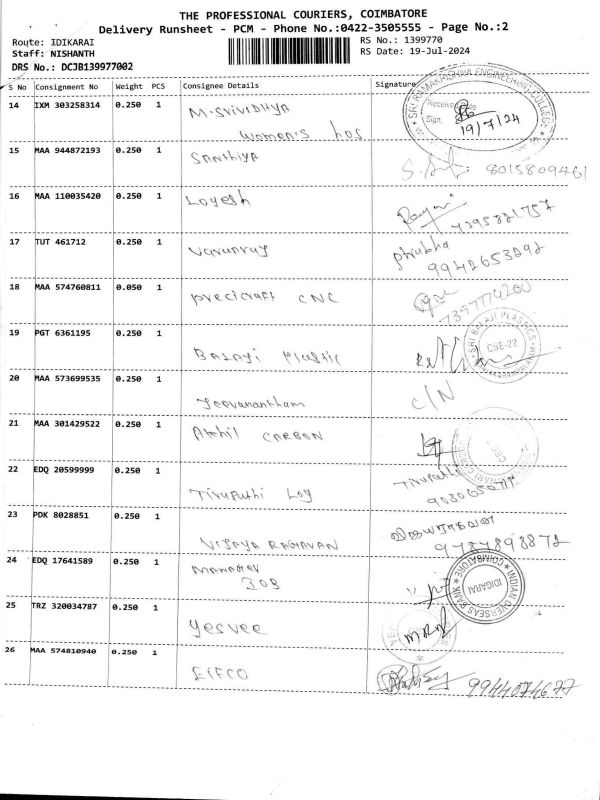 THE PROFESSIONAL COURIERS, COIMBATORE
Delivery Runsheet - PCM - Phone No.:0422-3505555 - Page No.:2
Route: IDIKARAI
RS No.: 1399770
Staff: NISHANTH
RS Date: 19-Jul-2024
DRS No.: DCJB139977002
S No Consignment No Weight PCS Consignee Details Signature
14 IXM 303258314 0.250 1 M.SriVIDHYA
Women's hos
SRI RAMAKRISHNA ENGINEERING COLLEGE
Sign.
19/7/24
15 MAA 944872193 0.250 1 Santhiya 8015809461
16 MAA 110035420 0.250 1 Logesh
7395821757
17 TUT 461712 0.250 1 Varunraj Phrabha
9942653292
18 MAA 574760811 0.050 1 Precicraft CNC
7397774200
19 PGT 6361195 0.250 1 Balaji Plastic
SRI BALAJI PLASTICS
CBE-22
20 MAA 573699535 0.250 1 Jeevanantham C/N
21 MAA 301429522 0.250 1 Akhil CARBON
22 EDQ 20599999 0.250 1 Tirupathi Log Tirupathi
23 PDK 8028851 0.250 1 VIJAYA RAGAVAN விஜயராகவன்
9787898872
24 EDQ 17641589 0.250 1 Manager
IOB
INDIAN OVERSEAS BANK
IDIGARAI
COIMBATORE
25 TRZ 320034787 0.250 1 Yesvee
26 MAA 574810940 0.250 1 EIFCO 9944074677